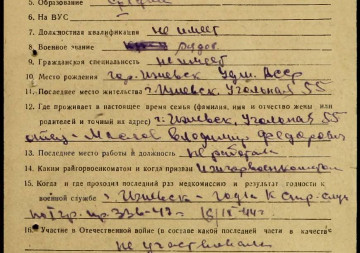 5. Образование среднее
6. На ВУС
7. Должностная квалификация не имеет
8. Военное звание рядов.
9. Гражданская специальность не имеет
10. Место рождения гор. Ижевск Удм. АССР
11. Последнее место жительства г. Ижевск, Угольная 55
12. Где проживает в настоящее время семья (фамилия, имя и отчество жены или
родителей и точный их адрес) г. Ижевск, Угольная 55
отец - Владимир Федорович
13. Последнее место работы и должность не работал
14. Каким райгорвоенкоматом и когда призван Ижгорвоенкоматом
15. Когда и где проходил последний раз медкомиссию и результат годности к
военной службе г. Ижевск - годен к
по I гр. пр. 336-42г. 44г.
16. Участие в Отечественной войне (в составе какой последней части и в качестве
не участвовал